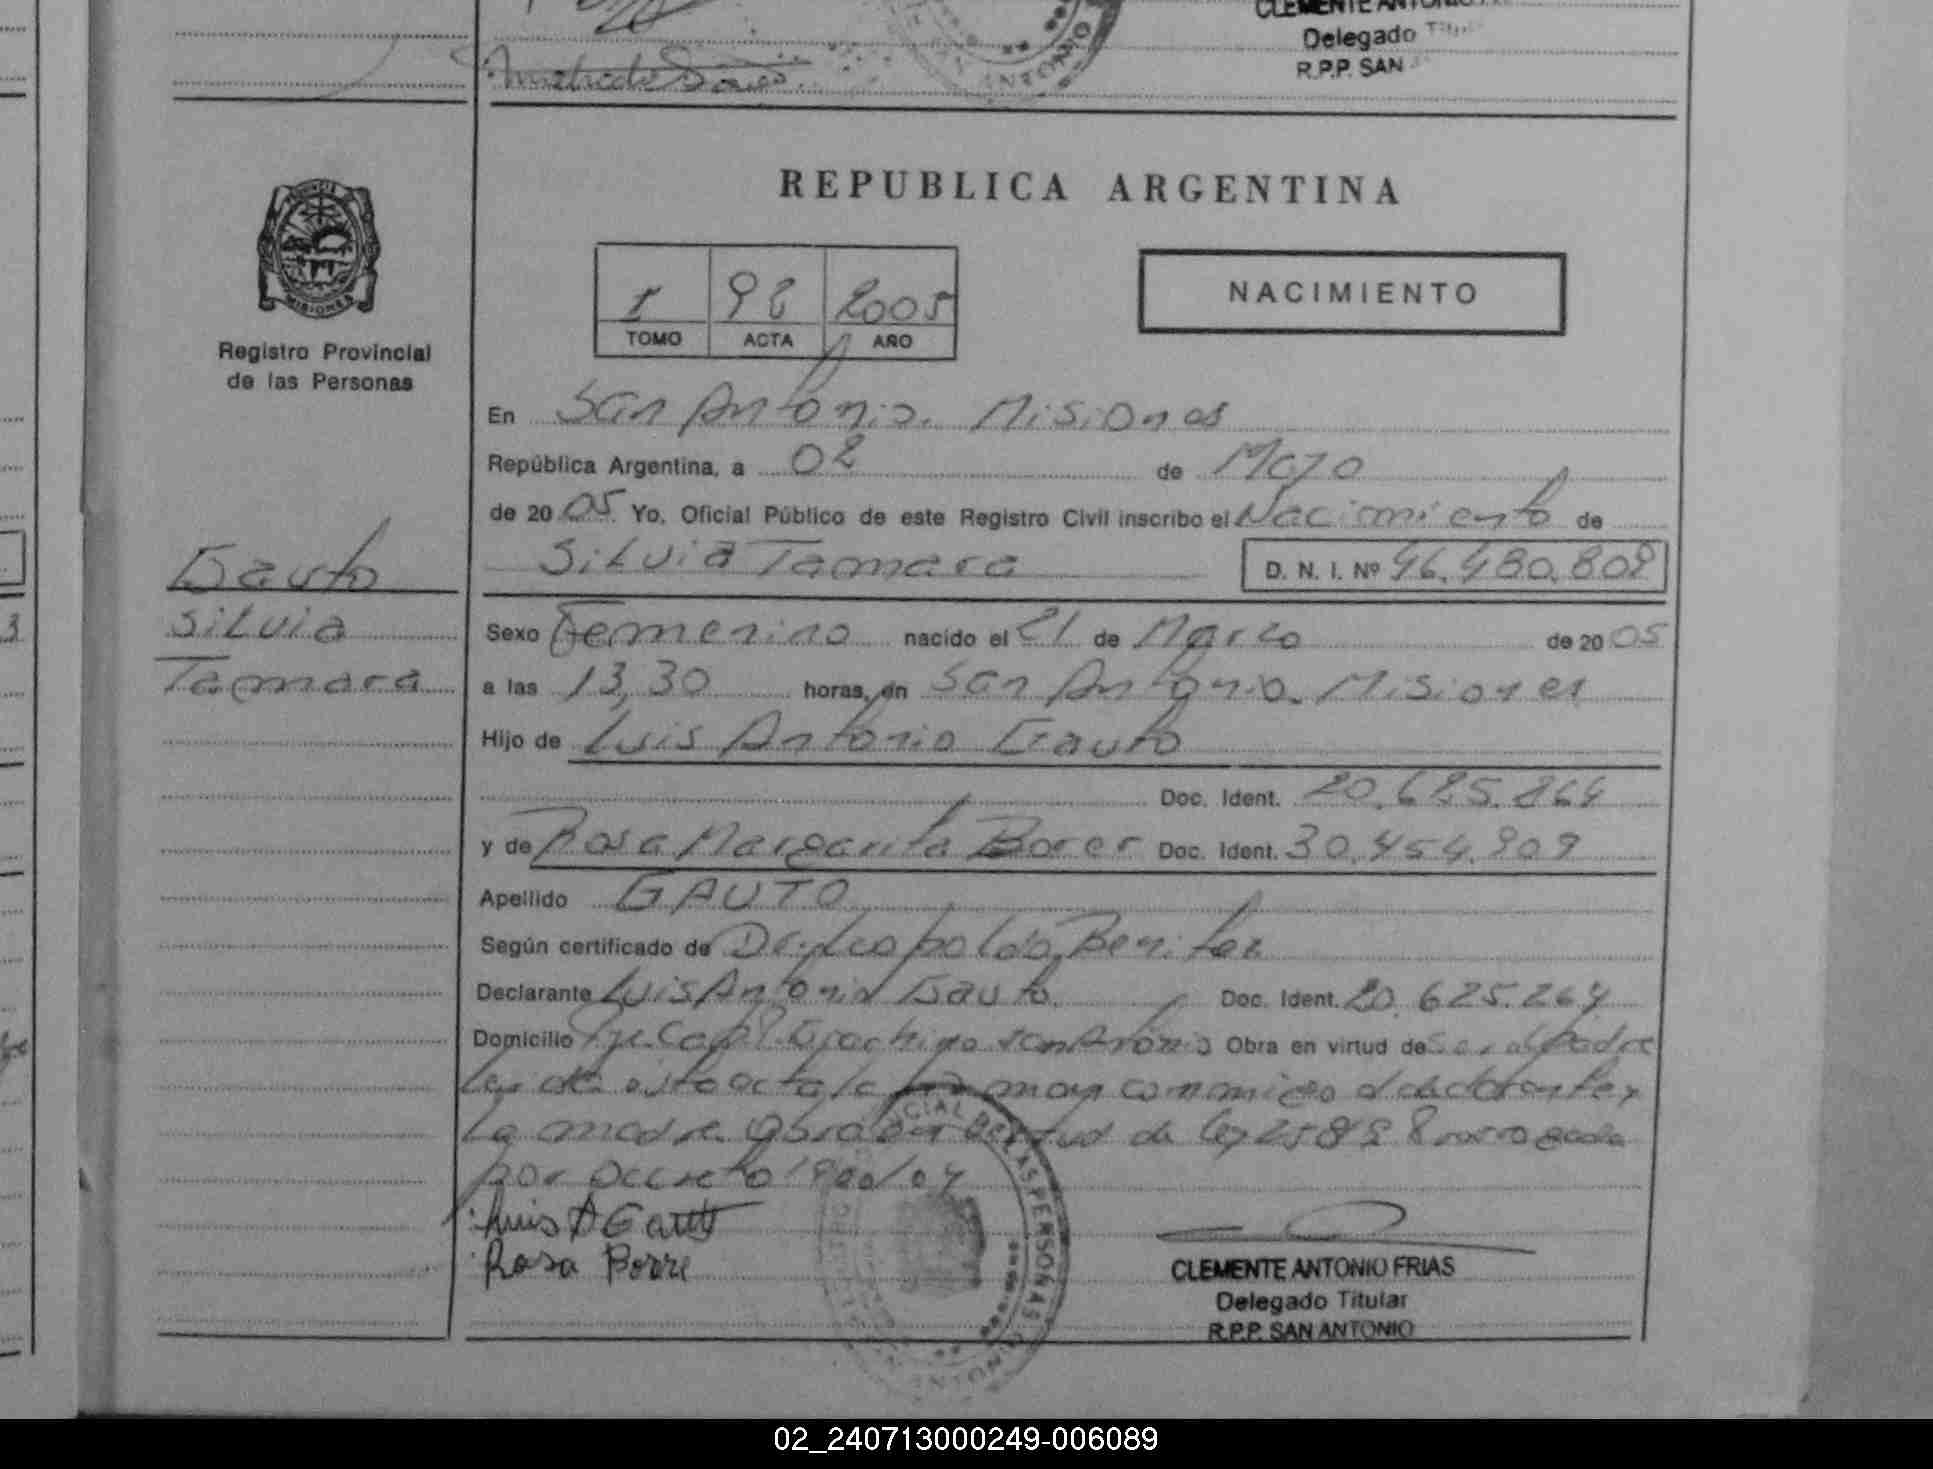 CLEMENTE ANTONIO
Delegado Titular
R.P.P. SAN
REPUBLICA ARGENTINA
PROVINCIA
MISIONES
NACIMIENTO
1 98 2005
TOMO ACTA AÑO
Registro Provincial
de las Personas
En San Antonio. Misiones
República Argentina, a 02 de Mayo
de 2005 Yo, Oficial Público de este Registro Civil inscribo el Nacimiento de
Silvia Tamara D. N. I. Nº 46.480.808
Gauto
Silvia
Tamara
Sexo Femenino nacido el 21 de Marzo de 2005
a las 13,30 horas, en San Antonio. Misiones
Hijo de Luis Antonio Gauto
Doc. Ident. 20.625.264
y de Rosa Margarita Borer Doc. Ident. 30.454.909
Apellido GAUTO
Según certificado de Dr. Leopoldo Benitez
Declarante Luis Antonio Gauto Doc. Ident. 20.625.264
Domicilio San Antonio Obra en virtud de Ser el Padre
acta la conmigo el declarante y
La madre. Obra en Virtud de Ley
por Decreto
Luis A Gauto
Rosa Borre
CLEMENTE ANTONIO FRIAS
Delegado Titular
R.P.P. SAN ANTONIO
02_240713000249-006089